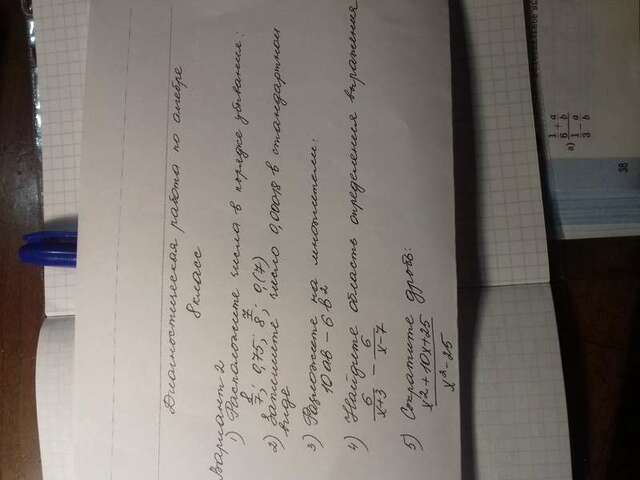 Диагностическая работа по алгебре
8 класс
Вариант 2
1) Расположите числа в порядке убывания:
8/7; 0,75; 7/8; 0,(7)
2) Запишите число 0,00018 в стандартном
виде
3) Разложите на множители:
10ab − 6b²
4) Найдите область определения выражения
6/(x+3) − 6/(x−7)
5) Сократите дробь:
(x²+10x+25)/(x²−25)
а) (1/6 + a/b)/(1/3 − a/b)
38